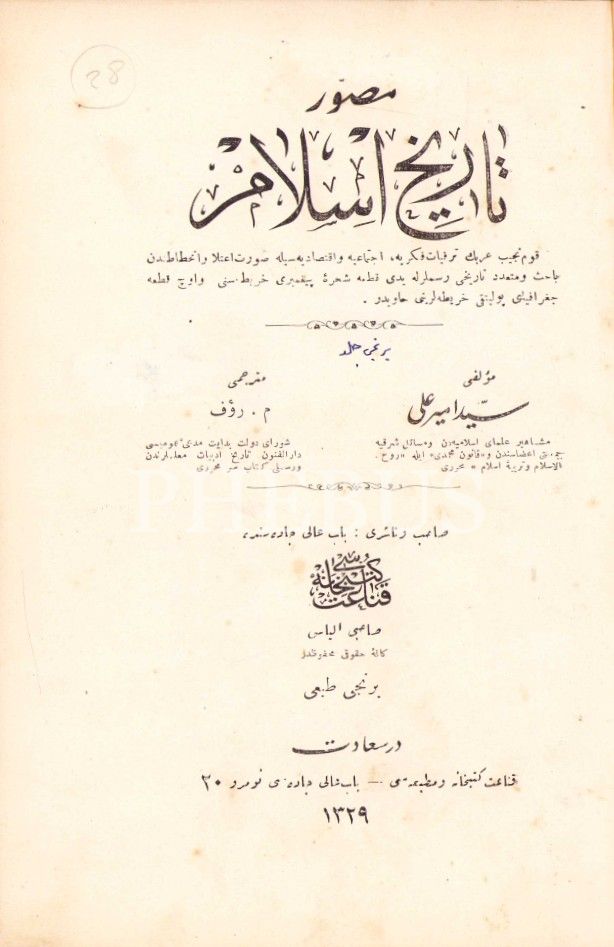 28
مصوّر
تاريخ اسلام
قوم نجيب عربك ترقيات فكريه، اجتماعيه و اقتصاديه سيله صورت اعتلا و انحطاطندن
باحث و متعدد تاريخى رسملرله يدى قطعه شجرۀ پيغمبرى خريطه سنى و اوچ قطعه
جغرافياى پوليتق خريطه لرينى حاويدر .
برنجى جلد
مؤلفى
سيّد امير على
مشاهير علماى اسلاميه دن و مسائل شرقيه
اعضاسندن و «قانون محمدى» ايله «روح
الاسلام و تربيۀ اسلام» محررى
مترجمى
م . رؤف
شوراى دولت بدايت مدعى عموميسى
دار الفنون تاريخ ادبيات معلملرندن
و رسملى كتاب محررى
PHEBUS
صاحب و ناشرى : باب عالى جاده سنده
قناعت كتبخانه سى
صاحبى الياس
كافۀ حقوقى محفوظدر
برنجى طبعى
در سعادت
قناعت كتبخانه و مطبعه سى — باب عالى جاده سى نومرو ٢٠
١٣٢٩